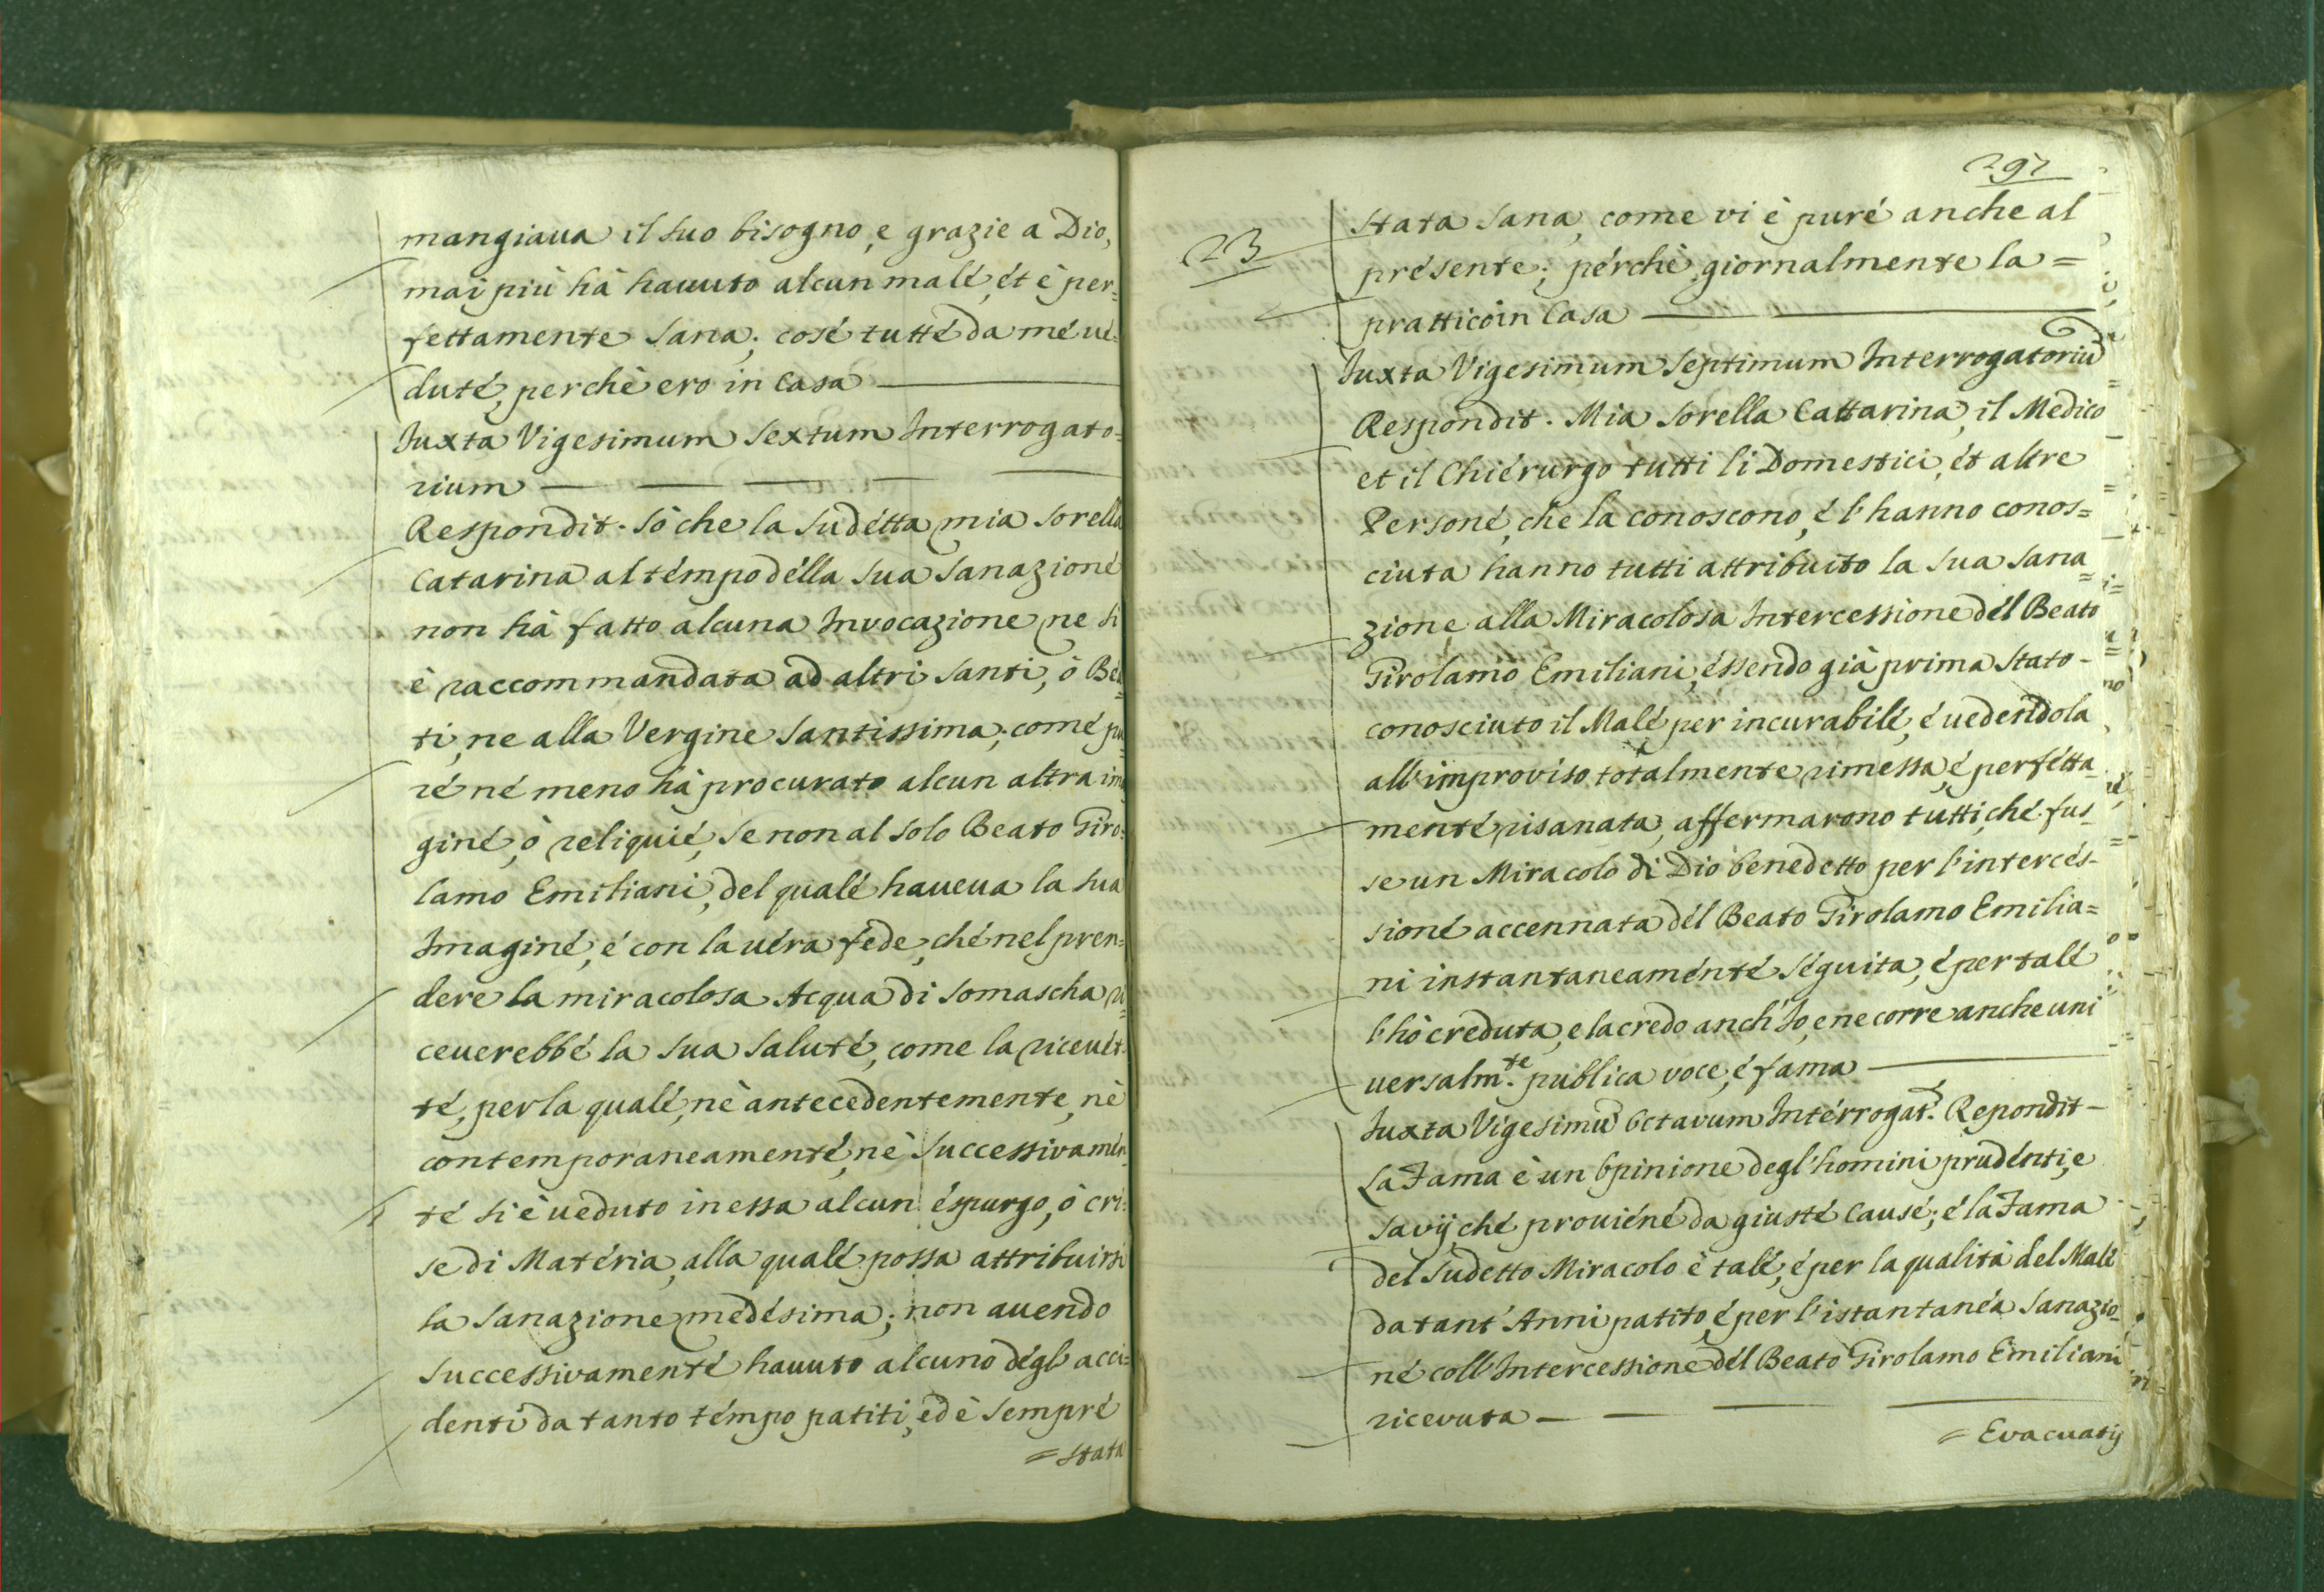 mangiaua il suo bisogno, e grazie a Dio,
mai più hà hauuto alcun malé, ét è per=
fettamente sana; cosé tutté da mé ué=
duté, perchè ero in Casa
Juxta Vigesimum Sextum Interrogato=
rium
Respondit. Sò che la Sudétta mia Sorella
Catarina al témpo délla sua Sanazioné
non hà fatto alcuna Invocazione ne si
è raccommandata ad altri Santi, ò Bea=
ti, ne alla Vergine Santissima; comé pu=
ré né meno hà procurato alcun altra ima
giné, ò reliquié, se non al solo Beato Giro=
lamo Emiliani, del qualé haueua la sua
Imaginé, é con la uéra féde, ché nel pren=
dere la miracolosa Acqua di Somascha ri=
ceuerebbé la sua Saluté, come la riceuét=
té, per la qualé, nè antecedentemente, nè
contemporaneamenté, nè Successivamén=
té si è ueduto in essa alcun éspurgo, ò cri=
se di Matéria, alla qualé possa attribuirsi
la Sanazione medésima; non auendo
Successivamenté hauuto alcuno dégl' acci=
denti da tanto témpo patiti, ed è Sempré
= stata
297
23
stata Sana, come vi è puré anche al
présente; pérchè giornalmente la =
prattico in Casa
Juxta Vigesimum Septimum Interrogatoriũ
Respondit. Mia Sorella Cattarina, il Medico
et il Chiérurgo tutti li Domestici, ét altre
Personé, che la conoscono, é l'hanno conos=
ciuta hanno tutti attribuito la sua Sana=
zione alla Miracolosa Intercessione dél Beato
Girolamo Emiliani, éssendo già prima Stato -
conosciuto il Malé per incurabilé, é uedendola
all' improviso totalmente rimessa, é perfétta=
menté risanata, affermarono tutti, ché fus=
se un Miracolo di Dio benedetto per l'intercés-
sioné accennata dél Beato Girolamo Emilia=
ni instantaneaménté séguita, é per talé
l'hò creduta, e la credo anch' Io, e ne corre anche uni
uersalm.te publica voce, é fama
Juxta Vigesimũ Octavum Intérrogat.m Repondit -
La Fama è un Opinione degl' homini prudénti, e
Savij ché prouiéné da giusté Causé; é la Fama
del Sudetto Miracolo è talé, é per la qualità del Malé
da tant' Anni patito, é per l'istantanéa Sanazio=
né coll' Intercessione dél Beato Girolamo Emiliani
ricevuta
= Evacuatij